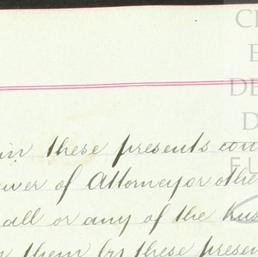 in these presents con
wer of Attorney or othe
all or any of the
them by these presen